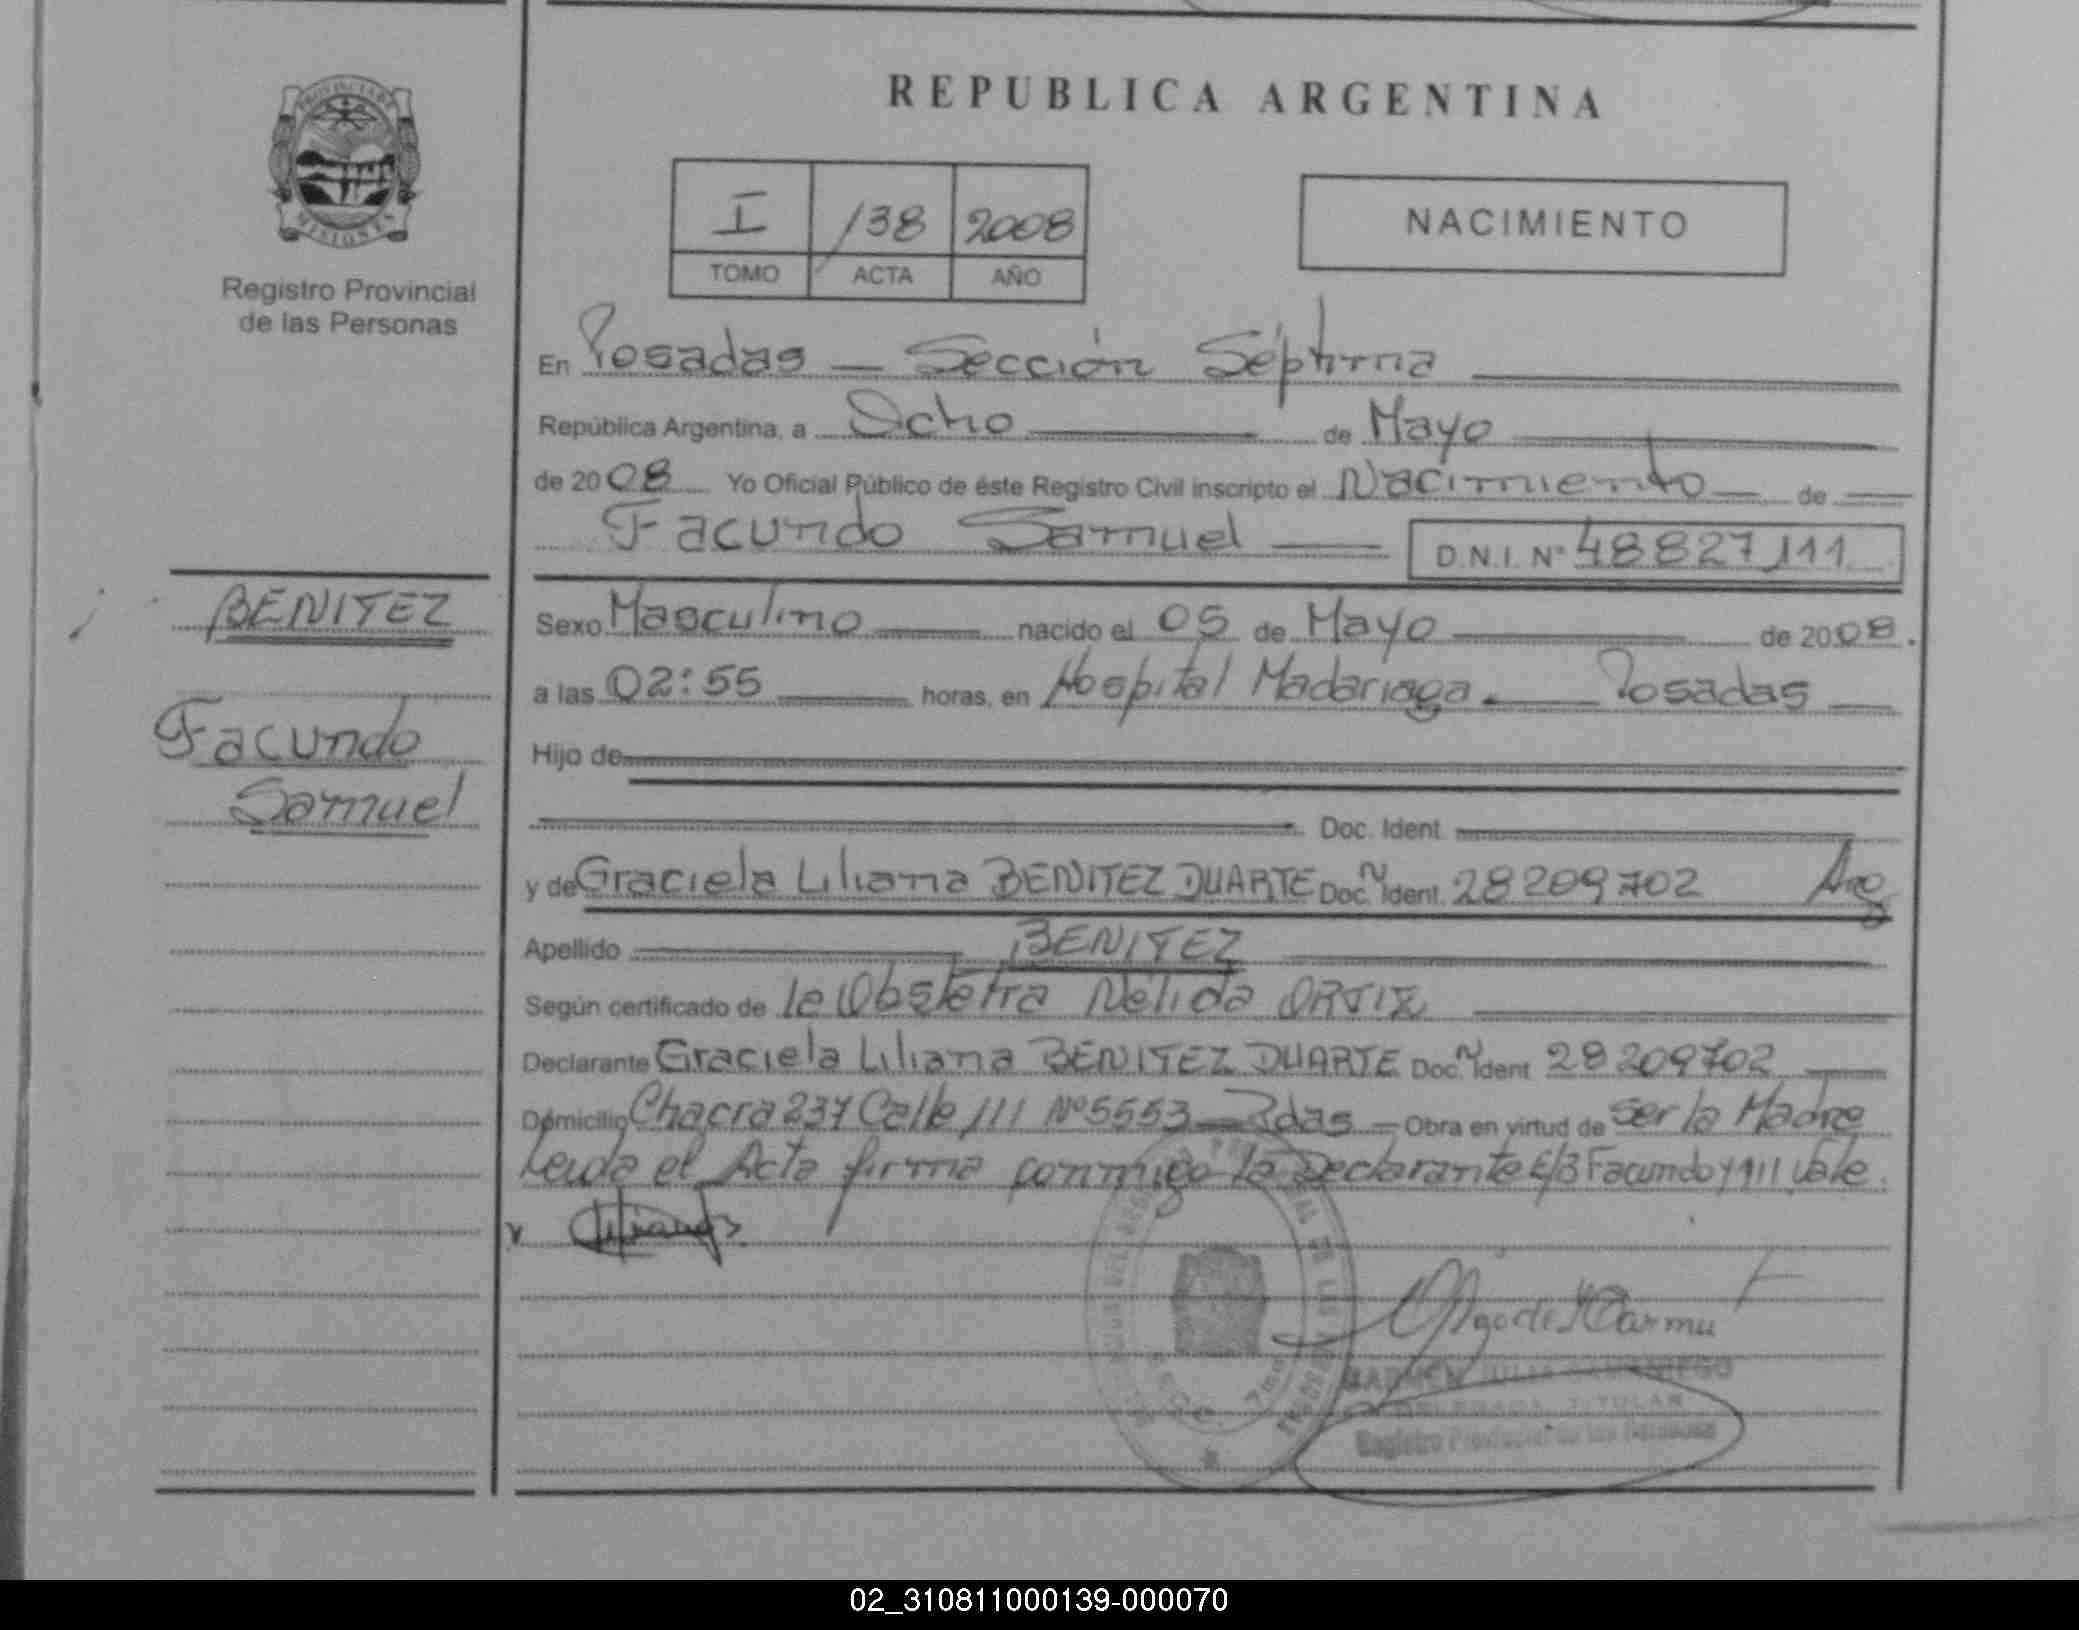 REPUBLICA ARGENTINA
PROVINCIA DE
MISIONES
Registro Provincial
de las Personas
I /38 2008
TOMO ACTA AÑO
NACIMIENTO
En Posadas — Sección Séptima
República Argentina, a Ocho de Mayo
de 2008 Yo Oficial Público de éste Registro Civil inscripto el Nacimiento de
Facundo Samuel D.N.I. Nº 48827111
BENITEZ
Facundo
Samuel
Sexo Masculino nacido el 05 de Mayo de 2008.
a las 02:55 horas, en Hospital Madariaga. Posadas
Hijo de
Doc. Ident.
y de Graciela Liliana BENITEZ DUARTE Doc. N Ident. 28209702 Arg
Apellido BENITEZ
Según certificado de la Obstetra Nélida ORTIZ
Declarante Graciela Liliana BENITEZ DUARTE Doc. N Ident 28209702
Domicilio Chacra 237 Calle 111 Nº 5553 — Pdas — Obra en virtud de Ser la Madre
Leida el Acta firma conmigo la Declarante E/B Facundo y 111 Vale.
DELEGADA TITULAR
Registro Provincial de las Personas
02_310811000139-000070